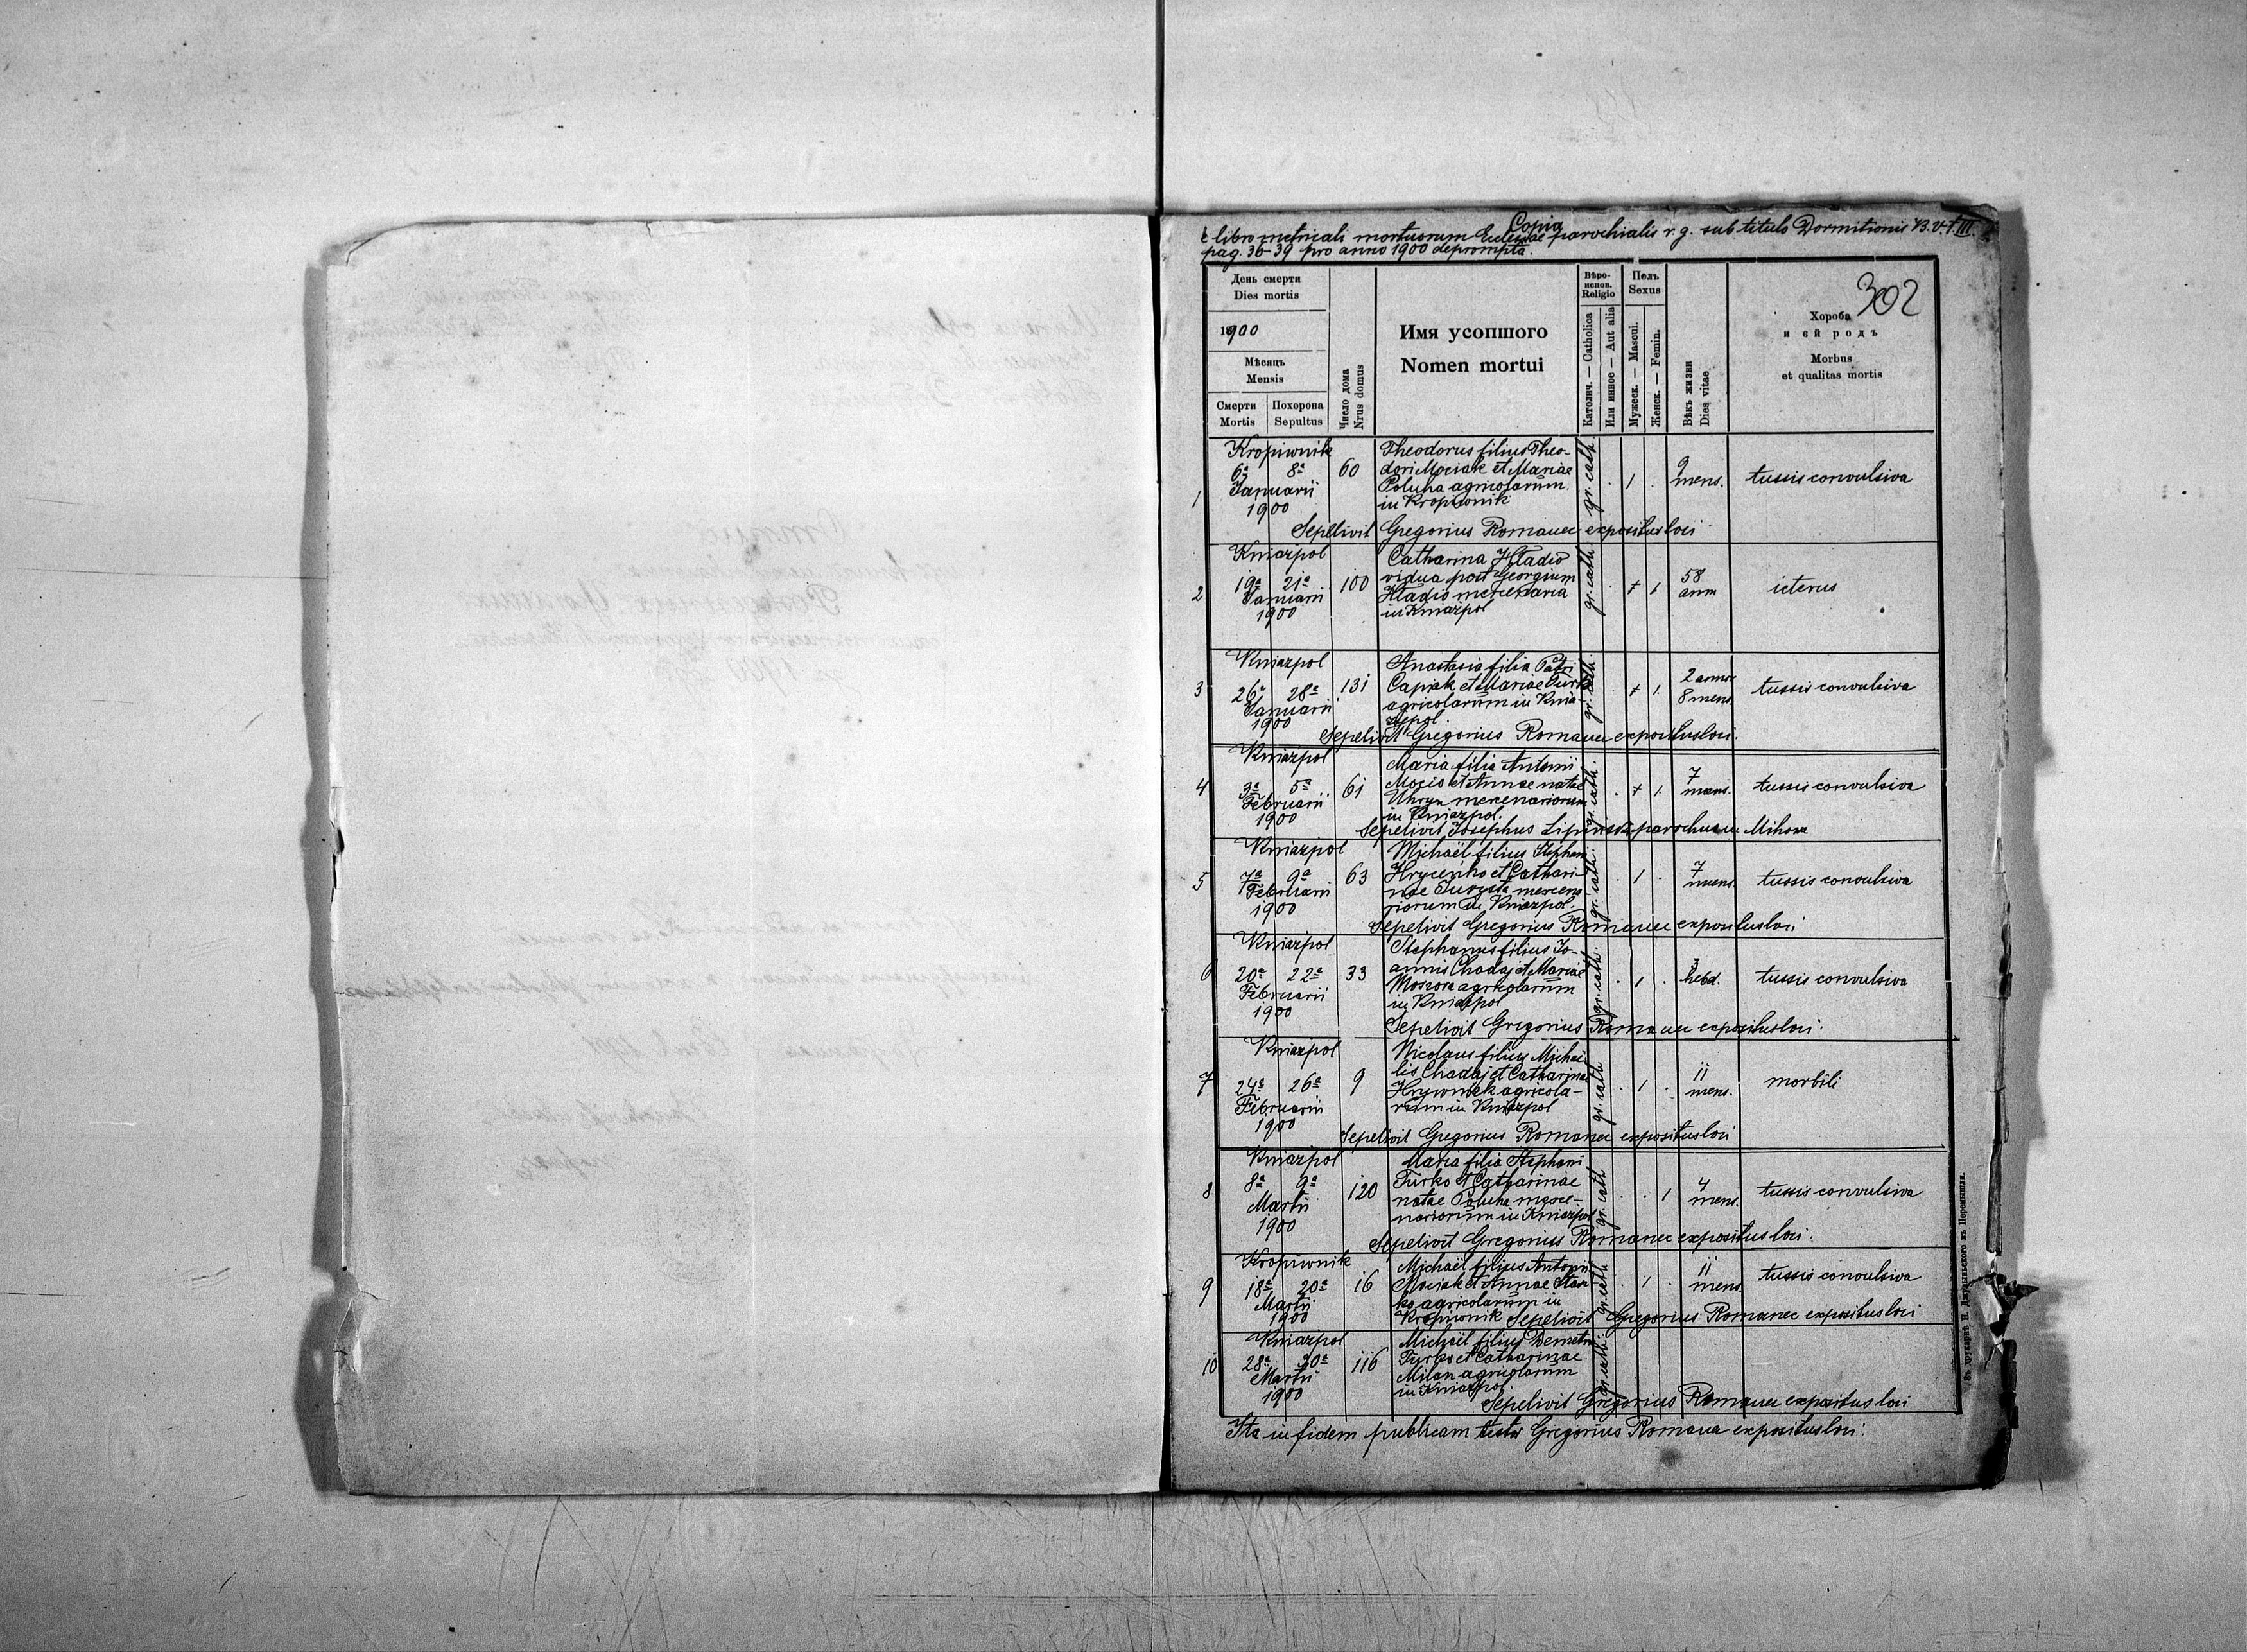 Copia
e libro metricali mortuorum Ecclesiae parochialis r. g. sub titulo Dormitionis B. V. t. III
pag. 36-39 pro anno 1900 deprompta.
302
День смерти
Dies mortis
1900
Мѣсяць
Mensis
Смерти
Mortis
Похорона
Sepultus
Число дома
Nrus domus
Имя усопшого
Nomen mortui
Вѣро-
испов.
Religio
Католич. — Catholica
Или инное — Aut alia
Полъ
Sexus
Мужеск. — Mascul.
Женск. — Femin.
Вѣкъ жизни
Dies vitae
Хороба
и єй родъ
Morbus
et qualitas mortis
1
Kropiwnik
6a 8a
Januarii
1900
60
Theodorus filius Theo-
dori Mociak et Mariae
Poluha agricolarum
in Kropiwnik
gr. cath.
9
mens.
tussis convulsiva
Sepelivit Gregorius Romanec expositus loci
2
Kniazpol
19a 21a
Januarii
1900
100
Catharina Hladio
vidua post Georgium
Hladio mercenaria
in Kniazpol
gr. cath.
58
anni
icterus
3
Kniazpol
26a 28a
Januarii
1900
131
Anastasia filia Petri
Capiak et Mariae Turko
agricolarum in Knia-
zpol.
gr. cath.
2 annos
8 mens.
tussis convulsiva
Sepelivit Gregorius Romanec expositus loci.
4
Kniazpol
3a 5a
Februarii
1900
61
Maria filia Antonii
Mocio et Annae natae
Uhryn mercenariorum
in Kniazpol.
gr. cath.
7
mens.
tussis convulsiva
Sepelivit Josephus Lipinski parochus in Mihowa
5
Kniazpol
7a 9a
Februarii
1900
63
Michaël filius Stephani
Hrycenko et Cathari-
nae mercena
riorum in Kniazpol.
gr. cath.
7
mens.
tussis convulsiva
Sepelivit Gregorius Romanec expositus loci
6
Kniazpol
20a 22a
Februarii
1900
33
Stephanus filius Jo-
annis Chadaj et Mariae
agricolarum
in Kniazpol
gr. cath.
3
hebd.
tussis convulsiva
Sepelivit Gregorius Romanec expositus loci.
7
Kniazpol
24a 26a
Februarii
1900
9
Nicolaus filius Michaë
lis Chadaj et Catharinae
Hrywniak agricola-
rum in Kniazpol
gr. cath.
11
mens.
morbili
Sepelivit Gregorius Romanec expositus loci
8
Kniazpol
8a 9a
Martii
1900
120
Maria filia Stephani
Turko et Catharinae
natae Poluha merce-
nariorum in Kniazpol
gr. cath.
4
mens.
tussis convulsiva
Sepelivit Gregorius Romanec expositus loci.
9
Kropiwnik
18a 20a
Martii
1900
16
Michaël filius Antonii
Mociak et Annae
agricolarum in
Kropiwnik Sepelivit Gregorius Romanec expositus loci
gr. cath.
11
mens.
tussis convulsiva
10
Kniazpol
28a 30a
Martii
1900
116
Michaël filius Demetrii
Turko et Catharinae
Milan agricolarum
in Kniazpol.
gr. cath.
Sepelivit Gregorius Romanec expositus loci
Ita in fidem publicam testor Gregorius Romanec expositus loci.
Въ друкарнѣ Н. Джулыньского въ Перемышли.